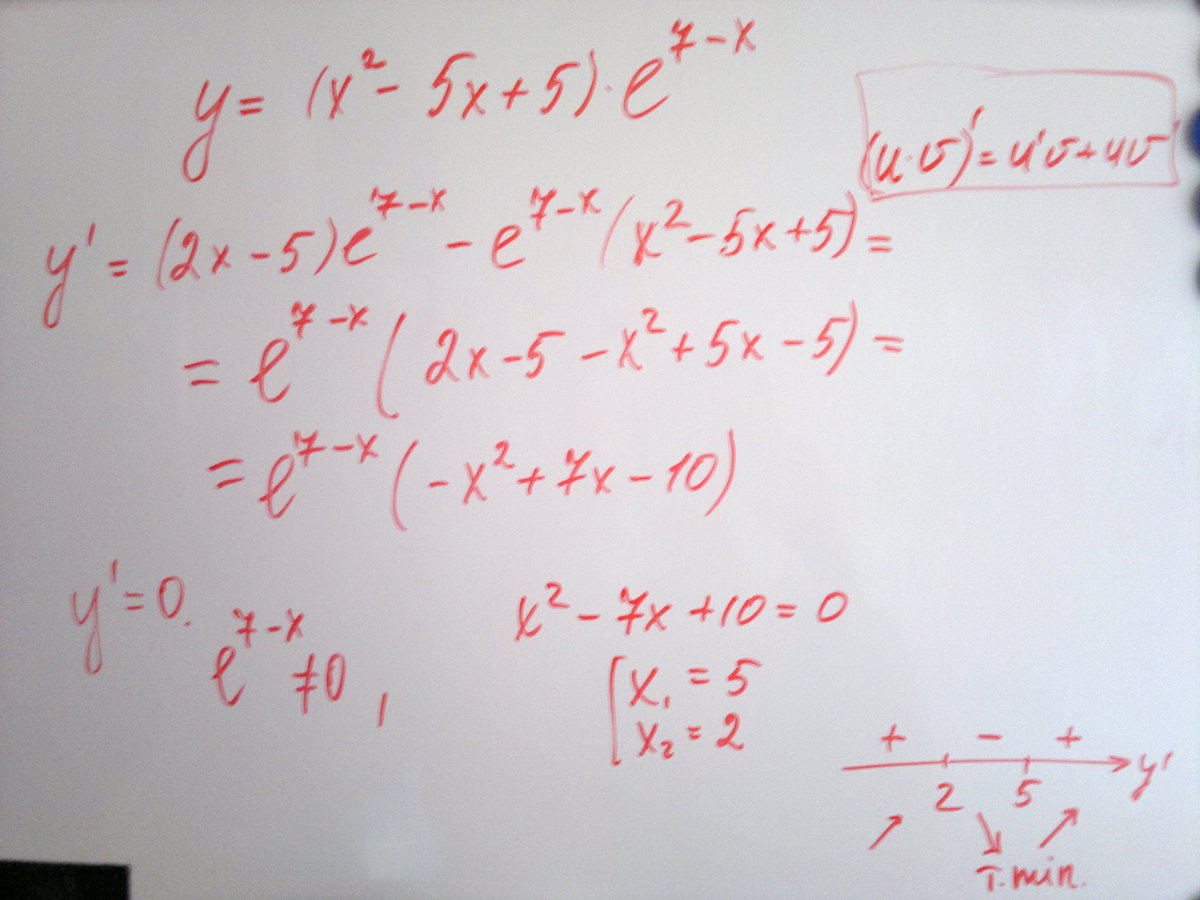 y = (x² - 5x + 5) · e^(7-x)
(u·v)' = u'v + uv'
y' = (2x - 5)e^(7-x) - e^(7-x) (x² - 5x + 5) =
= e^(7-x) (2x - 5 - x² + 5x - 5) =
= e^(7-x) (-x² + 7x - 10)
y' = 0.
e^(7-x) ≠ 0 ,
x² - 7x + 10 = 0
[ x₁ = 5
x₂ = 2
+ - +
2 5 y'
↗ ↘ ↗
т. min.